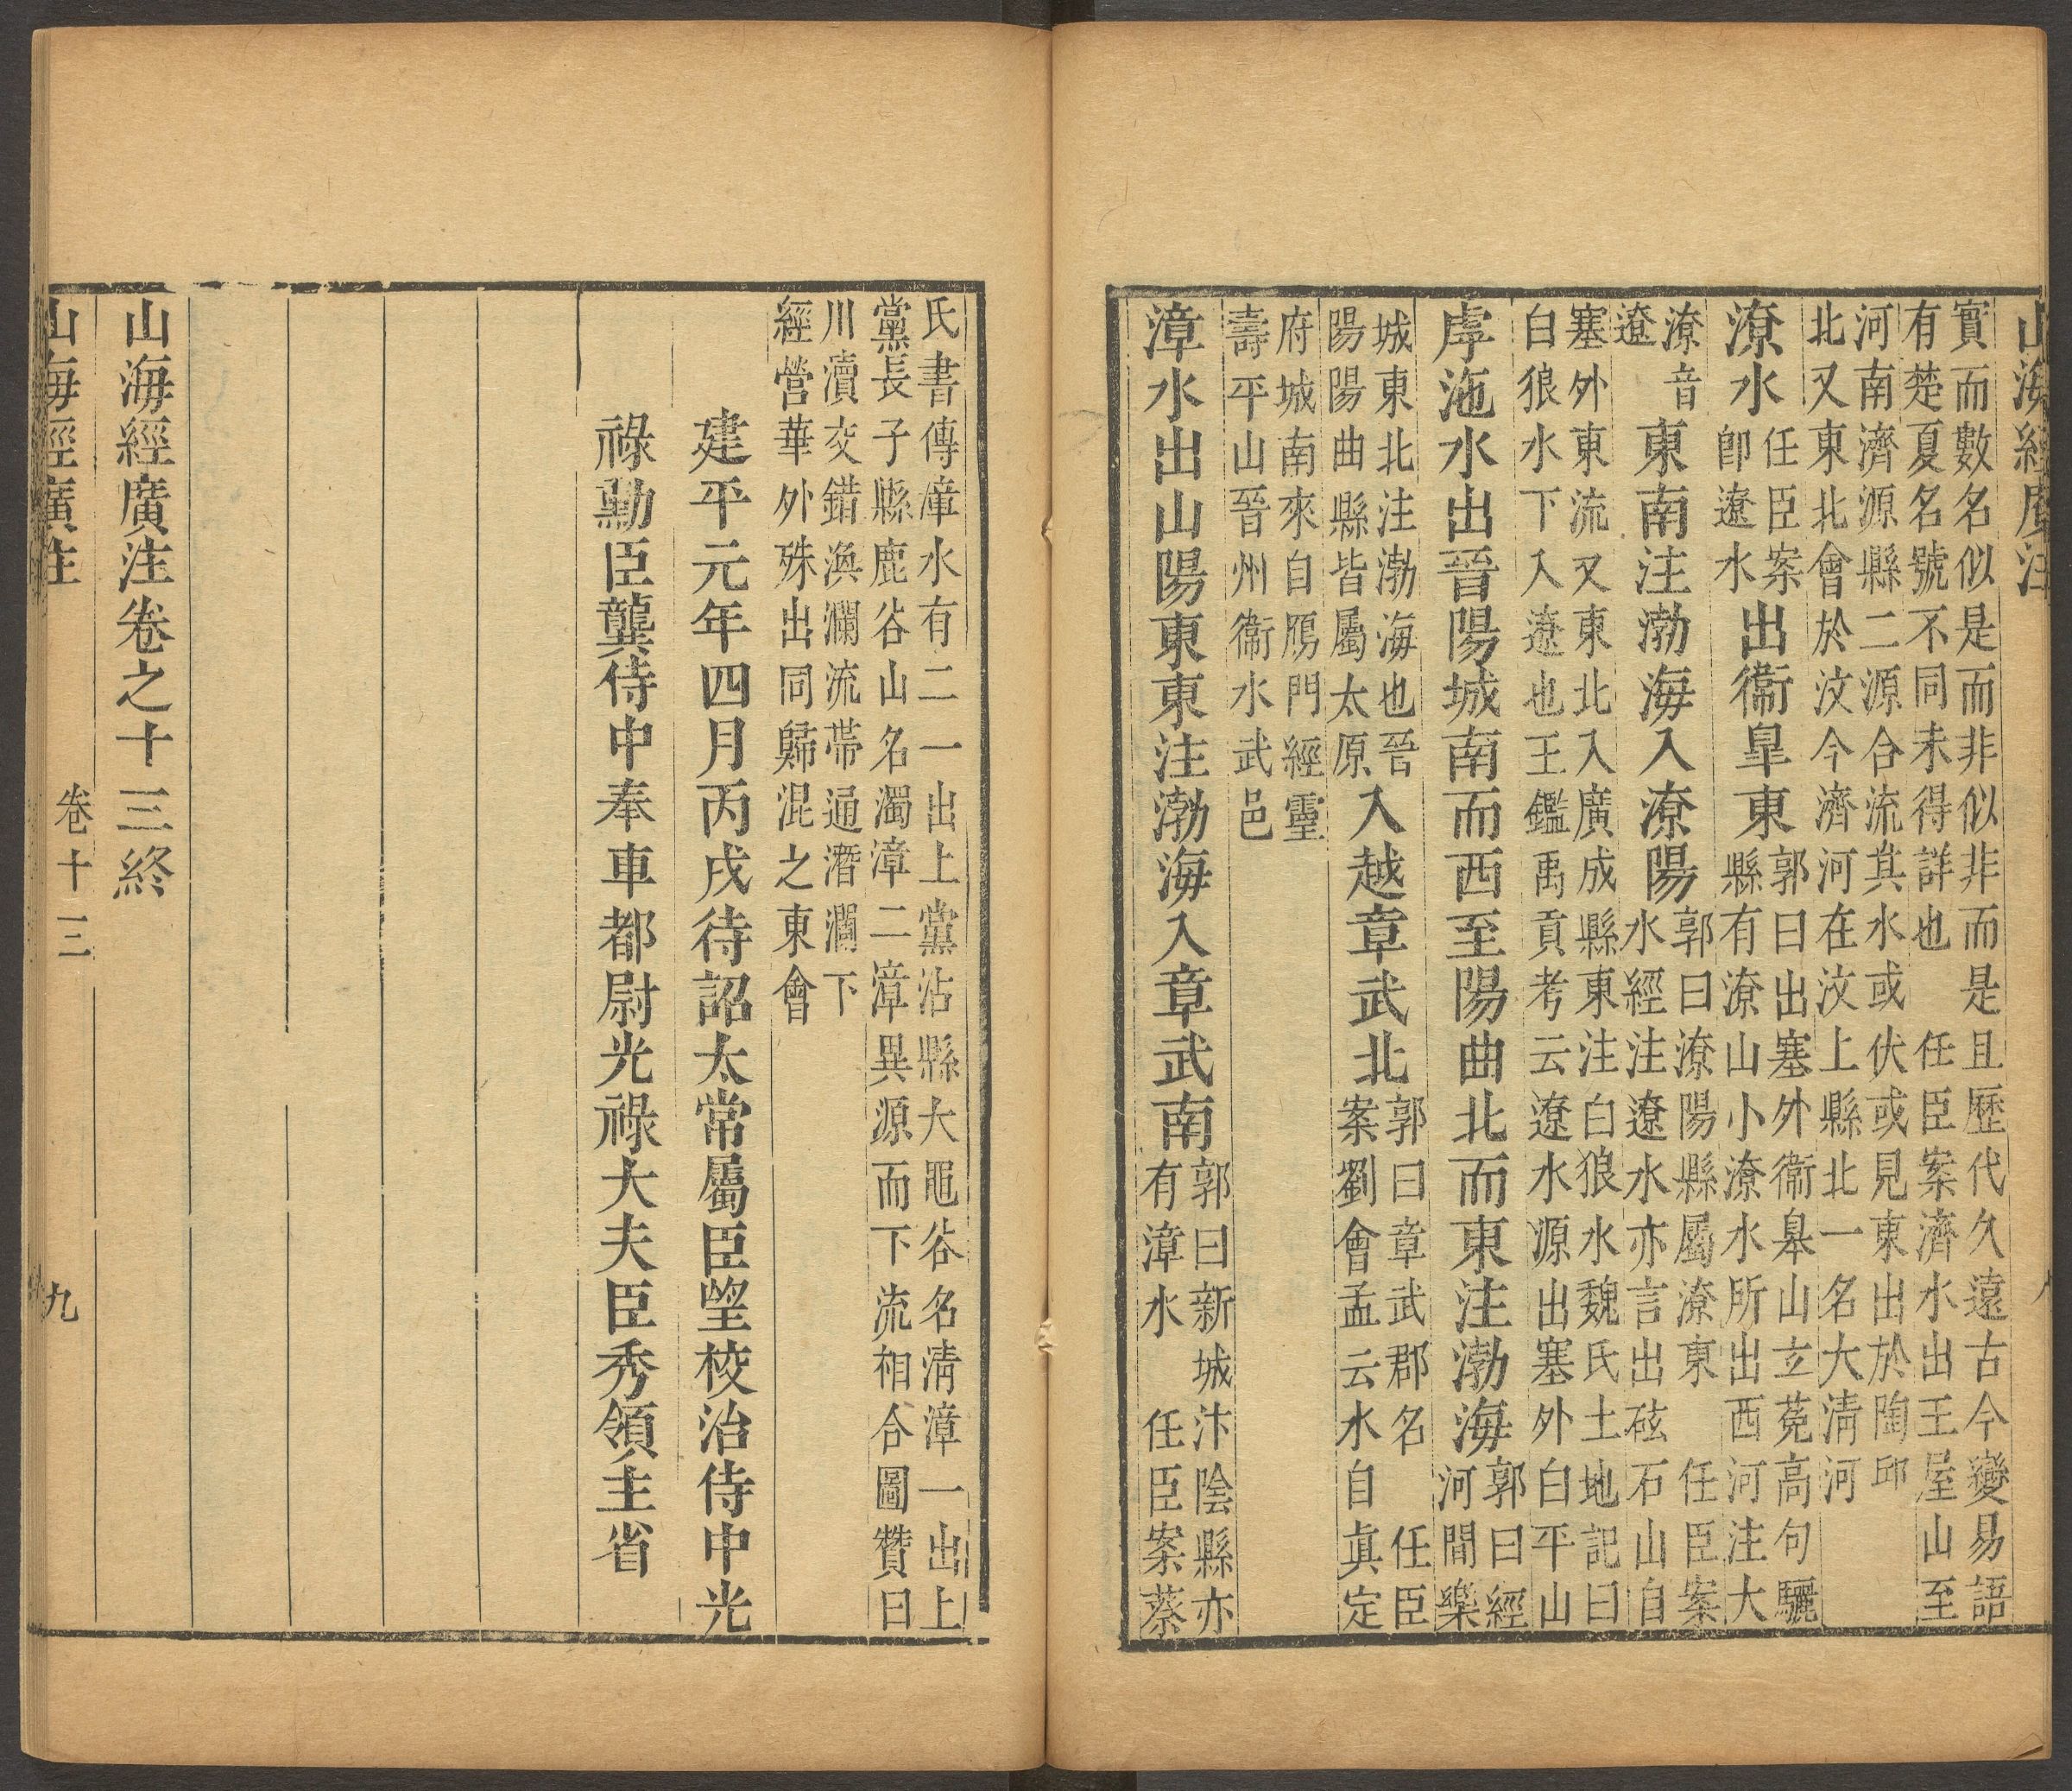 山海經廣注
實而數名似是而非似非而是且歷代久遠古今變易語
有楚夏名號不同未得詳也 任臣案濟水出王屋山至
河南濟源縣二源合流其水或伏或見東出於陶邱
北又東北會於汶今濟河在汶上縣北一名大清河
潦水任臣案卽遼水出衞臯東郭曰出塞外衞皋山玄菟高句驪縣有潦山小潦水所出西河注大
潦音遼東南注渤海入潦陽郭曰潦陽縣屬潦東 任臣案水經注遼水亦言出砝石山自
塞外東流又東北入廣成縣東注白狼水魏氏土地記曰
白狼水下入遼也王鑑禹貢考云遼水源出塞外白平山
虖沲水出晉陽城南而西至陽曲北而東注渤海郭曰經河間樂
城東北注渤海也晉陽陽曲縣皆屬太原入越章武北郭曰章武郡名 任臣案劉會孟云水自眞定
府城南來自鴈門經靈
壽平山晉州衞水武邑
漳水出山陽東東注渤海入章武南郭曰新城汴陰縣亦有漳水 任臣案蔡
氏書傳漳水有二一出上黨沾縣大黽谷名淸漳一出上
黨長子縣鹿谷山名濁漳二漳異源而下流相合圖贊曰
川瀆交錯渙瀾流帶通潛澗下
經營華外殊出同歸混之東會
建平元年四月丙戌待詔太常屬臣望校治侍中光
祿勳臣龔侍中奉車都尉光祿大夫臣秀領主省
山海經廣注卷之十三終
山海經廣注 卷十三 九